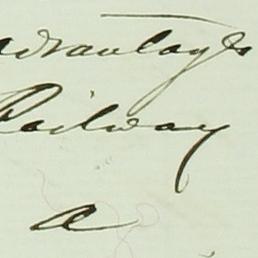 advantages
Railway
a